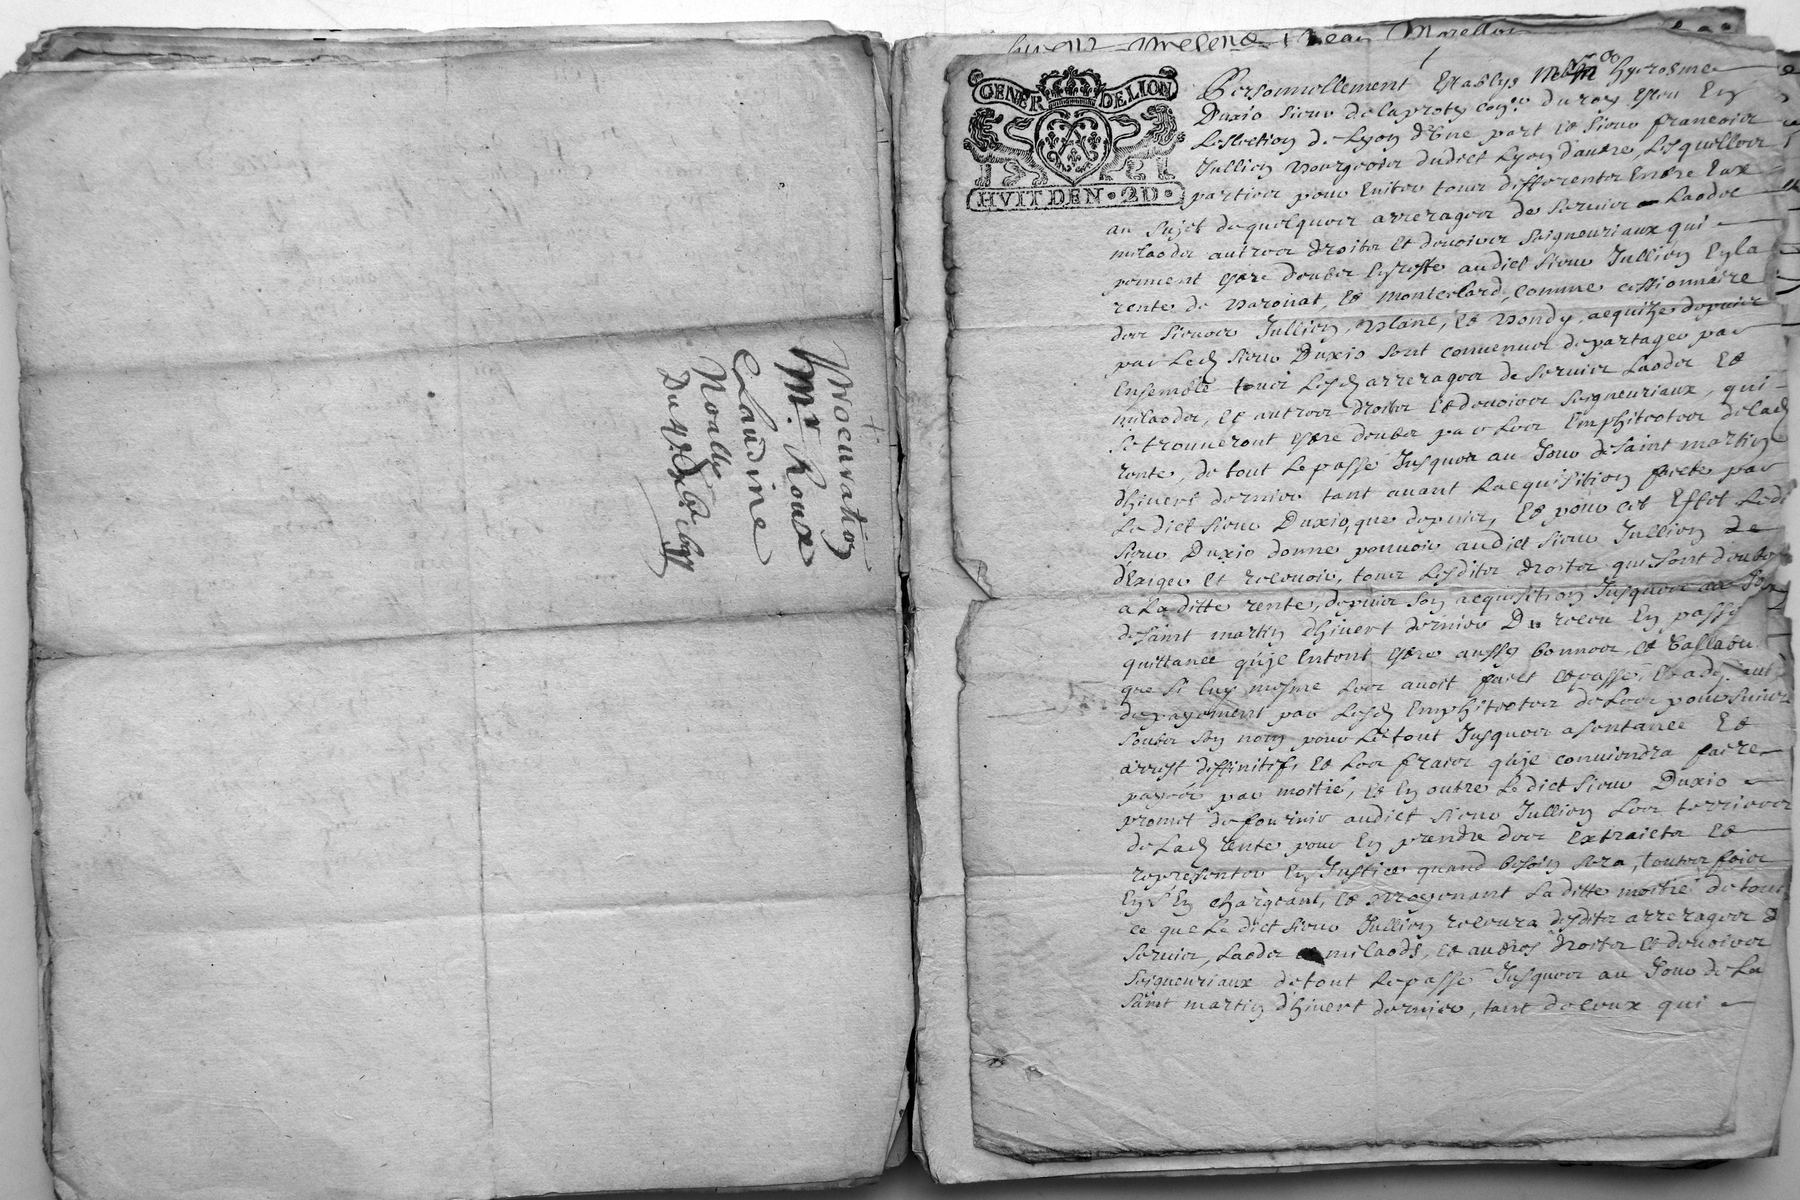 Procuration
Mr Roux
Claudine
Noally
Du
Jean Morellon
GENER DE LION
HVIT DEN · 2D ·
Personnellement Establys Hyerosme
Duxio sieur de la coner du roy esleu En
Leslection de Lyon d'Une part et sieur francois
Jullien bourgeois dudict Lyon d'autre, Lesquelles
parties pour Eviter tous differentes Entre Eux
au sujet de quelques arrerages de servis Laods
milaods autres droits et devoirs seigneuriaux qui
peuvent estre deubs audict sieur Jullien En la
rente de varonat, et Montclard, comme cessionnaire
des sieurs Jullien, blanc, et bondy acquize depuis
par Led sieur Duxio sont convenues de partager par
Ensemble tous Lesd arrerages de servis Laods et
milaods, et autres droits et devoirs seigneuriaux, qui
se trouveront estre deubs par Les Emphiteotes de lad
rente, de tout Le passé Jusques au Jour de saint martin
d'hivert dernier tant avant L'acquisition faicte par
Le dict sieur Duxio, que depuis, et pour cet Effet Ledt
sieur Duxio donne pouvoir audict sieur Jullien de
d'Exiger et recevoir, tous Lesdits droits qui sont deubs
a La ditte rente, depuis son acquisition Jusques au Jour
de saint martin d'hivert dernier Du receu En passer
quittance qu'il Entent estre aussy bonnes, et vallable
que si Luy mesme Les avoit faict et passé, Et a deffaut
de payement par Lesd Emphiteotes de Les poursuivre
soubs son nom pour Le tout Jusques a sentance Et
arrest diffinitif, et Les frais qu'il conviendra faire
payés par moitié, et En outre Le dict sieur Duxio
promet de fournir audict sieur Jullien Les terriers
de Lad rente pour En prendre des Extraicts et
representer En Justice quand besoin sera, toutes fois
En s'En chargeant, et moyenant La ditte moitié de tout
ce que Le dict sieur Jullien recevra desdits arrerages de
servis, Laods et milaods, et autres droits et devoirs
seigneuriaux de tout Le passé Jusques au Jour de La
saint martin d'hivert dernier, tant de ceux qui